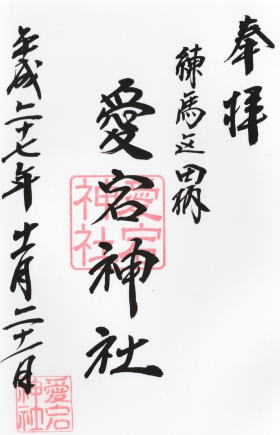 奉拝
練馬区田柄
愛宕神社
愛宕
神社
平成二十七年十一月二十一日
愛宕
神社